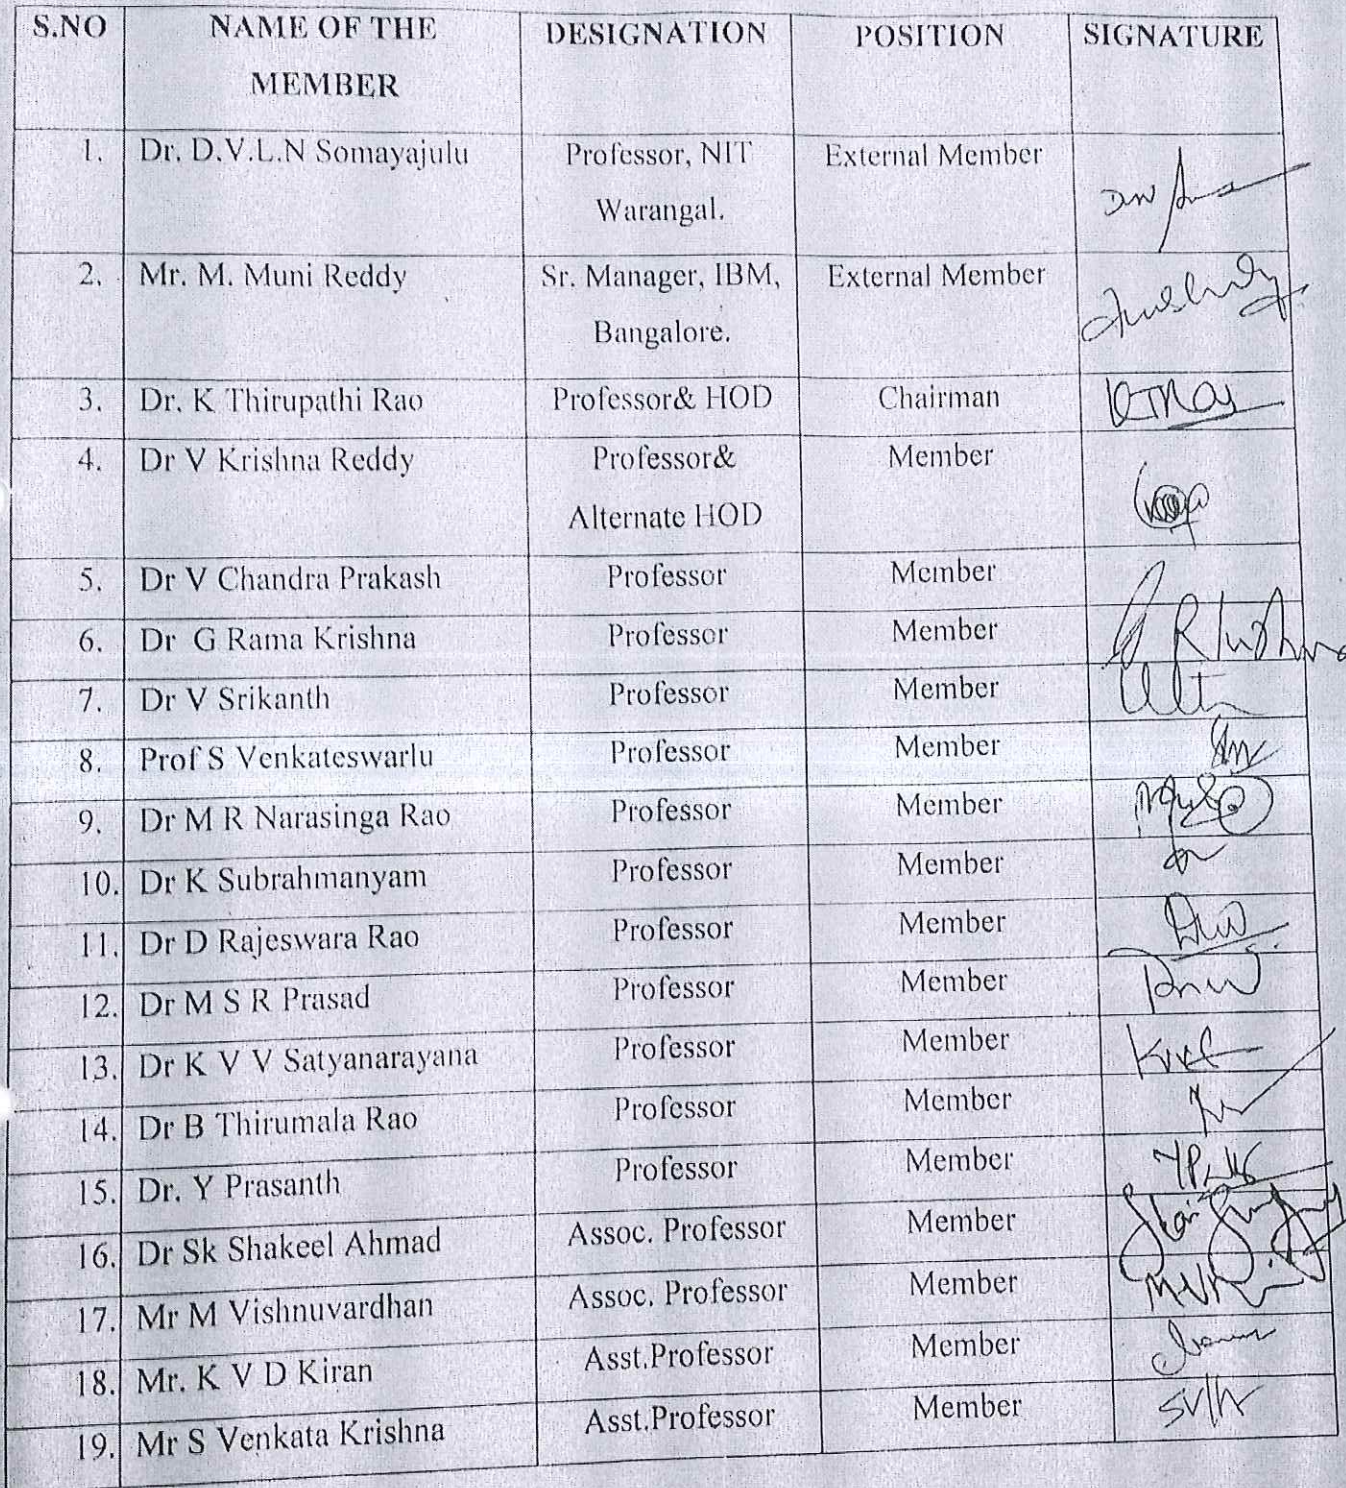 S.NO NAME OF THE DESIGNATION POSITION SIGNATURE
MEMBER
1. Dr. D.V.L.N Somayajulu Professor, NIT External Member
Warangal.
2. Mr. M. Muni Reddy Sr. Manager, IBM, External Member
Bangalore.
3. Dr. K Thirupathi Rao Professor& HOD Chairman
4. Dr V Krishna Reddy Professor& Member
Alternate HOD
5. Dr V Chandra Prakash Professor Member
6. Dr G Rama Krishna Professor Member
7. Dr V Srikanth Professor Member
8. Prof S Venkateswarlu Professor Member
9. Dr M R Narasinga Rao Professor Member
10. Dr K Subrahmanyam Professor Member
11. Dr D Rajeswara Rao Professor Member
12. Dr M S R Prasad Professor Member
13. Dr K V V Satyanarayana Professor Member
14. Dr B Thirumala Rao Professor Member
15. Dr. Y Prasanth Professor Member
16. Dr Sk Shakeel Ahmad Assoc. Professor Member
17. Mr M Vishnuvardhan Assoc. Professor Member
18. Mr. K V D Kiran Asst.Professor Member
19. Mr S Venkata Krishna Asst.Professor Member